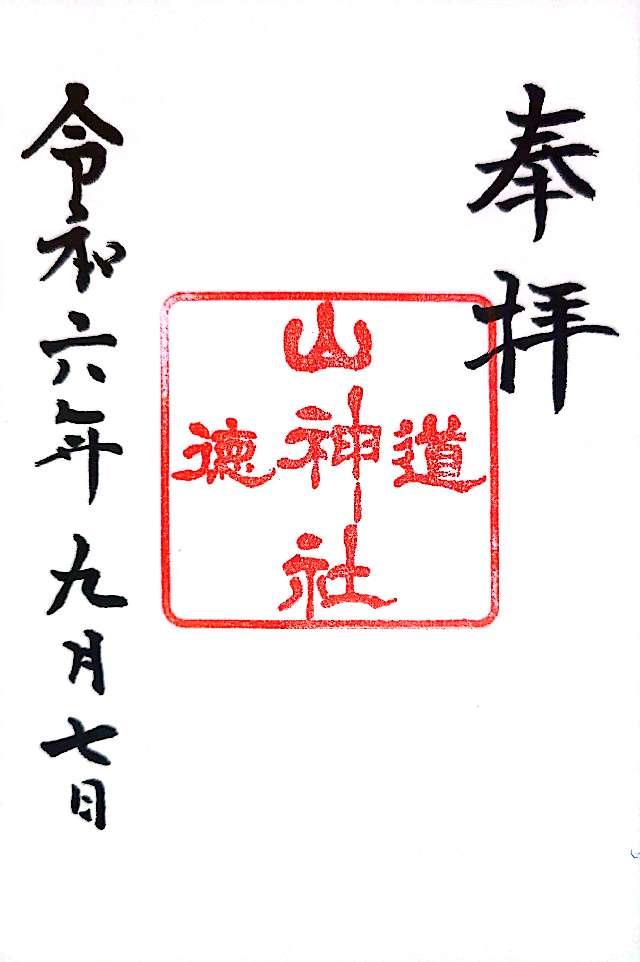 奉拝
道
山神社
徳
令和六年九月七日